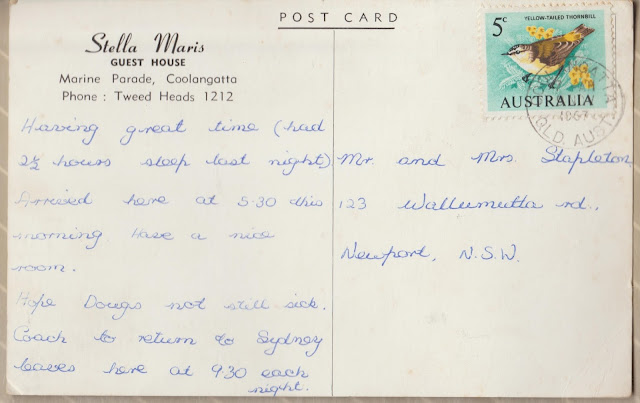 POST CARD
Stella Maris
GUEST HOUSE
Marine Parade, Coolangatta
Phone : Tweed Heads 1212
Having great time (had
2½ hours sleep last night)
Arrived here at 5.30 this
morning Have a nice
room.
Hope Dougs not still sick.
Coach to return to Sydney
leaves here at 9.30 each
night.
5c
YELLOW-TAILED THORNBILL
AUSTRALIA
1967
QLD. AUST
Mr. and Mrs. Stapleton
123 Wallumutta rd.,
Newport, N.S.W.